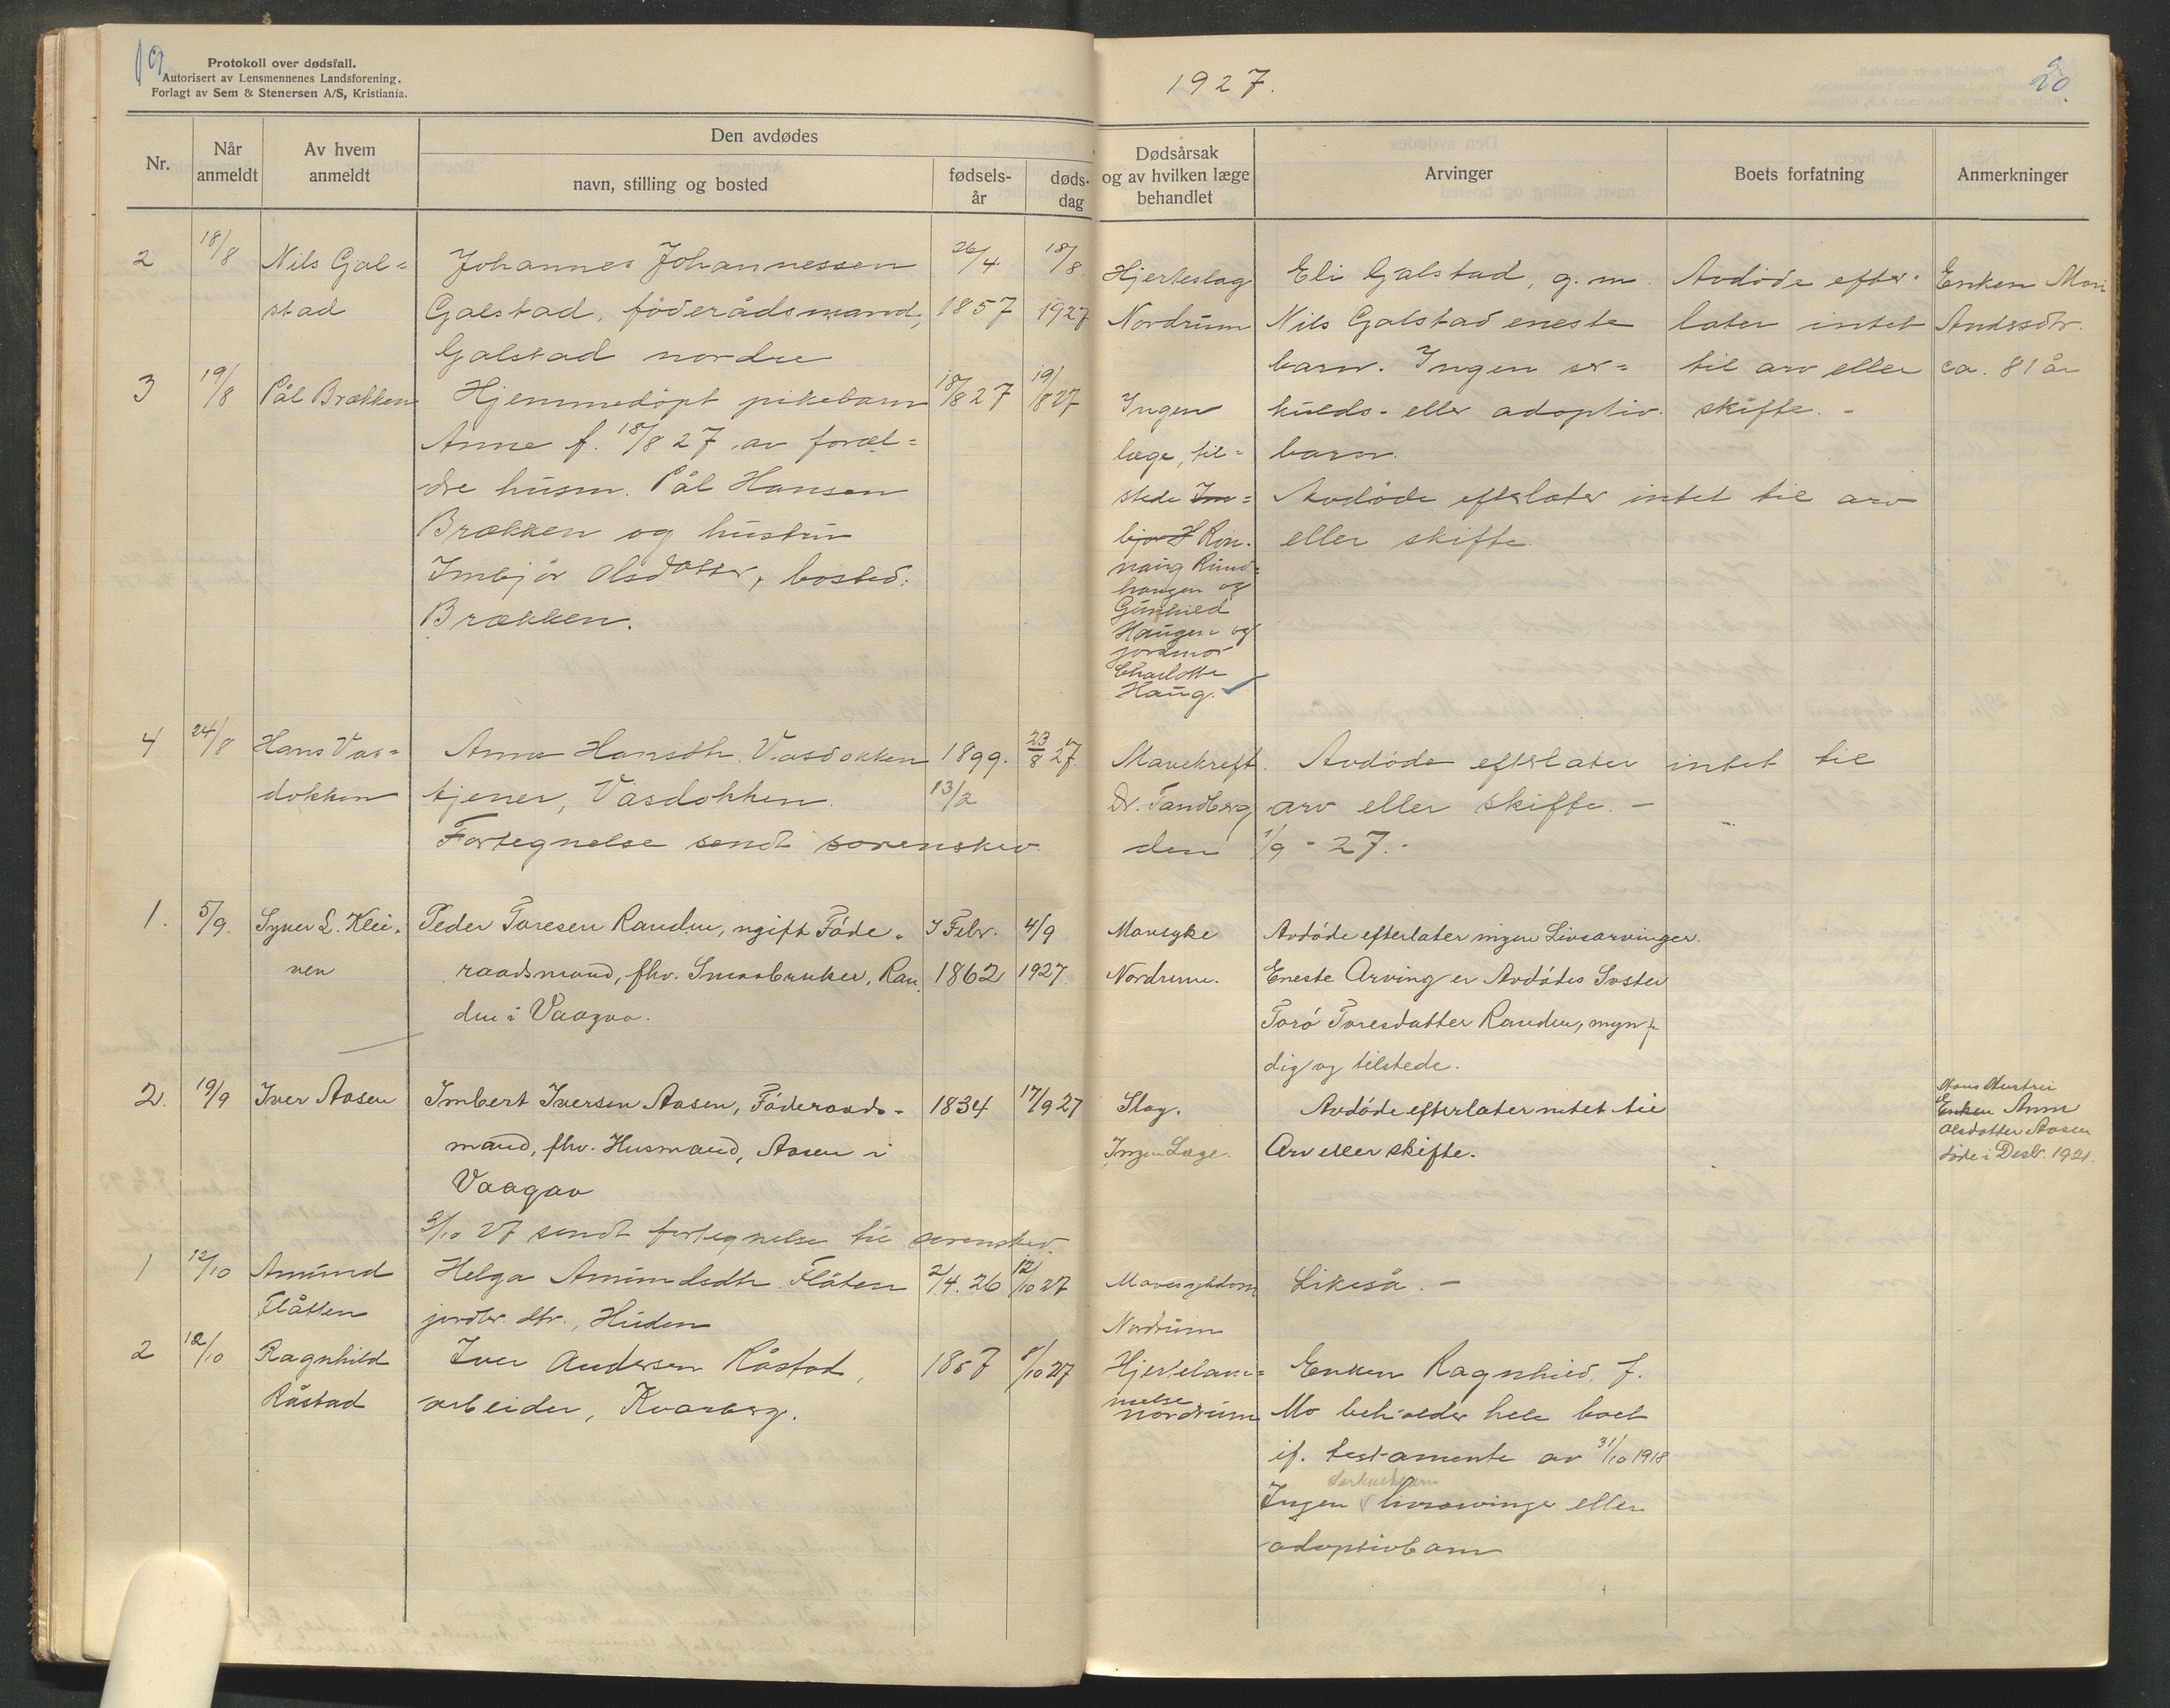 19
Protokoll over dødsfall.
Autorisert av Lensmennenes Landsforening.
Forlagt av Sem & Stenersen A/S, Kristiania.
Nr.
Når anmeldt
Av hvem anmeldt
Den avdødes
navn, stilling og bosted
fødselsår
dødsdag
2 18/8 Nils Gal= Johannes Johannessen 26/4 18/8
stad Galstad, föderådsmand, 1857 1927
Galstad nordre
3 19/8 Pål Brækken Hjemmedöpt pikebarn 18/8 27 19/8 27
Anne f. 18/8 27 av foræl=
dre husm. Pål Hansen
Brækken og hustru
Imbjör Olsdatter, bosted:
Brækken.
4 24/8 Hans Vas= Anna Hansdtr. Vasdokken 1899. 23/8 27.
dokken tjener, Vasdokken. 13/2
Fortegnelse sendt sorenskr.
1. 5/9. Syver L. Klei- Peder Toresen Randen, ugift Föde- Febr. 4/9
ven raadsmand, fhv. Smaabruker, Ran- 1862 1927.
den i Vaagaa.
2. 19/9 Iver Aasen Imbert Iversen Aasen, Föderaads- 1834 17/9 27
mand, fhv. Husmand, Aasen i
Vaagaa
3/10 27 sendt fortegnelse til sorenskr.
1 12/10 Amund Helga Amundsdtr. Flåten 2/4. 26 12/10 27
Flåtten jordbr. dtr., Hiden
2 12/10 Ragnhild Iver Andersen Råstad, 1857 8/10 27
Råstad arbeider, Kvarberg.
1927.
20.
Dødsårsak
og av hvilken læge
behandlet
Arvinger
Boets forfatning
Anmerkninger
Hjerteslag Eli Galstad, g. m. Avdöde efter- Enken Mari
Nordrum Nils Galstad eneste later intet Andrsdtr.
barn. Ingen sær= til arv eller ca. 81 år
Ingen kulds- eller adoptiv- skifte. -
læge, til= barn.
stede Im= Avdöde efterlater intet til arv
bjør H Rön- eller skifte.
naug Rund=
haugen og
Gunhild
Haugen og
jordmor
Charlotte
Haug.
Mavekreft. Avdöde efterlater intet til
Dr. Tandberg arv eller skifte. -
den 1/9 - 27. -
Mavsyke Avdöde efterlater ingen Livsarvinger.
Nordrum. Eneste Arving er Avdödes Söster
Torö Toresdatter Randen, myn-
dig og tilstede.
Slag. Avdöde efterlater intet til
Ingen Læge. Arv eller skifte.
Hans Hustru
Enken Anne
Olsdatter Aasen
döde i Desbr. 1921.
Mavesykdom Likeså. -
Nordrum
Hjertelam= Enken Ragnhild f.
melse
Nordrum Mo beholder hele boet
if. testamente av 31/10 1918
særkuldsbarn
Ingen livsarvinger eller
adoptivbarn